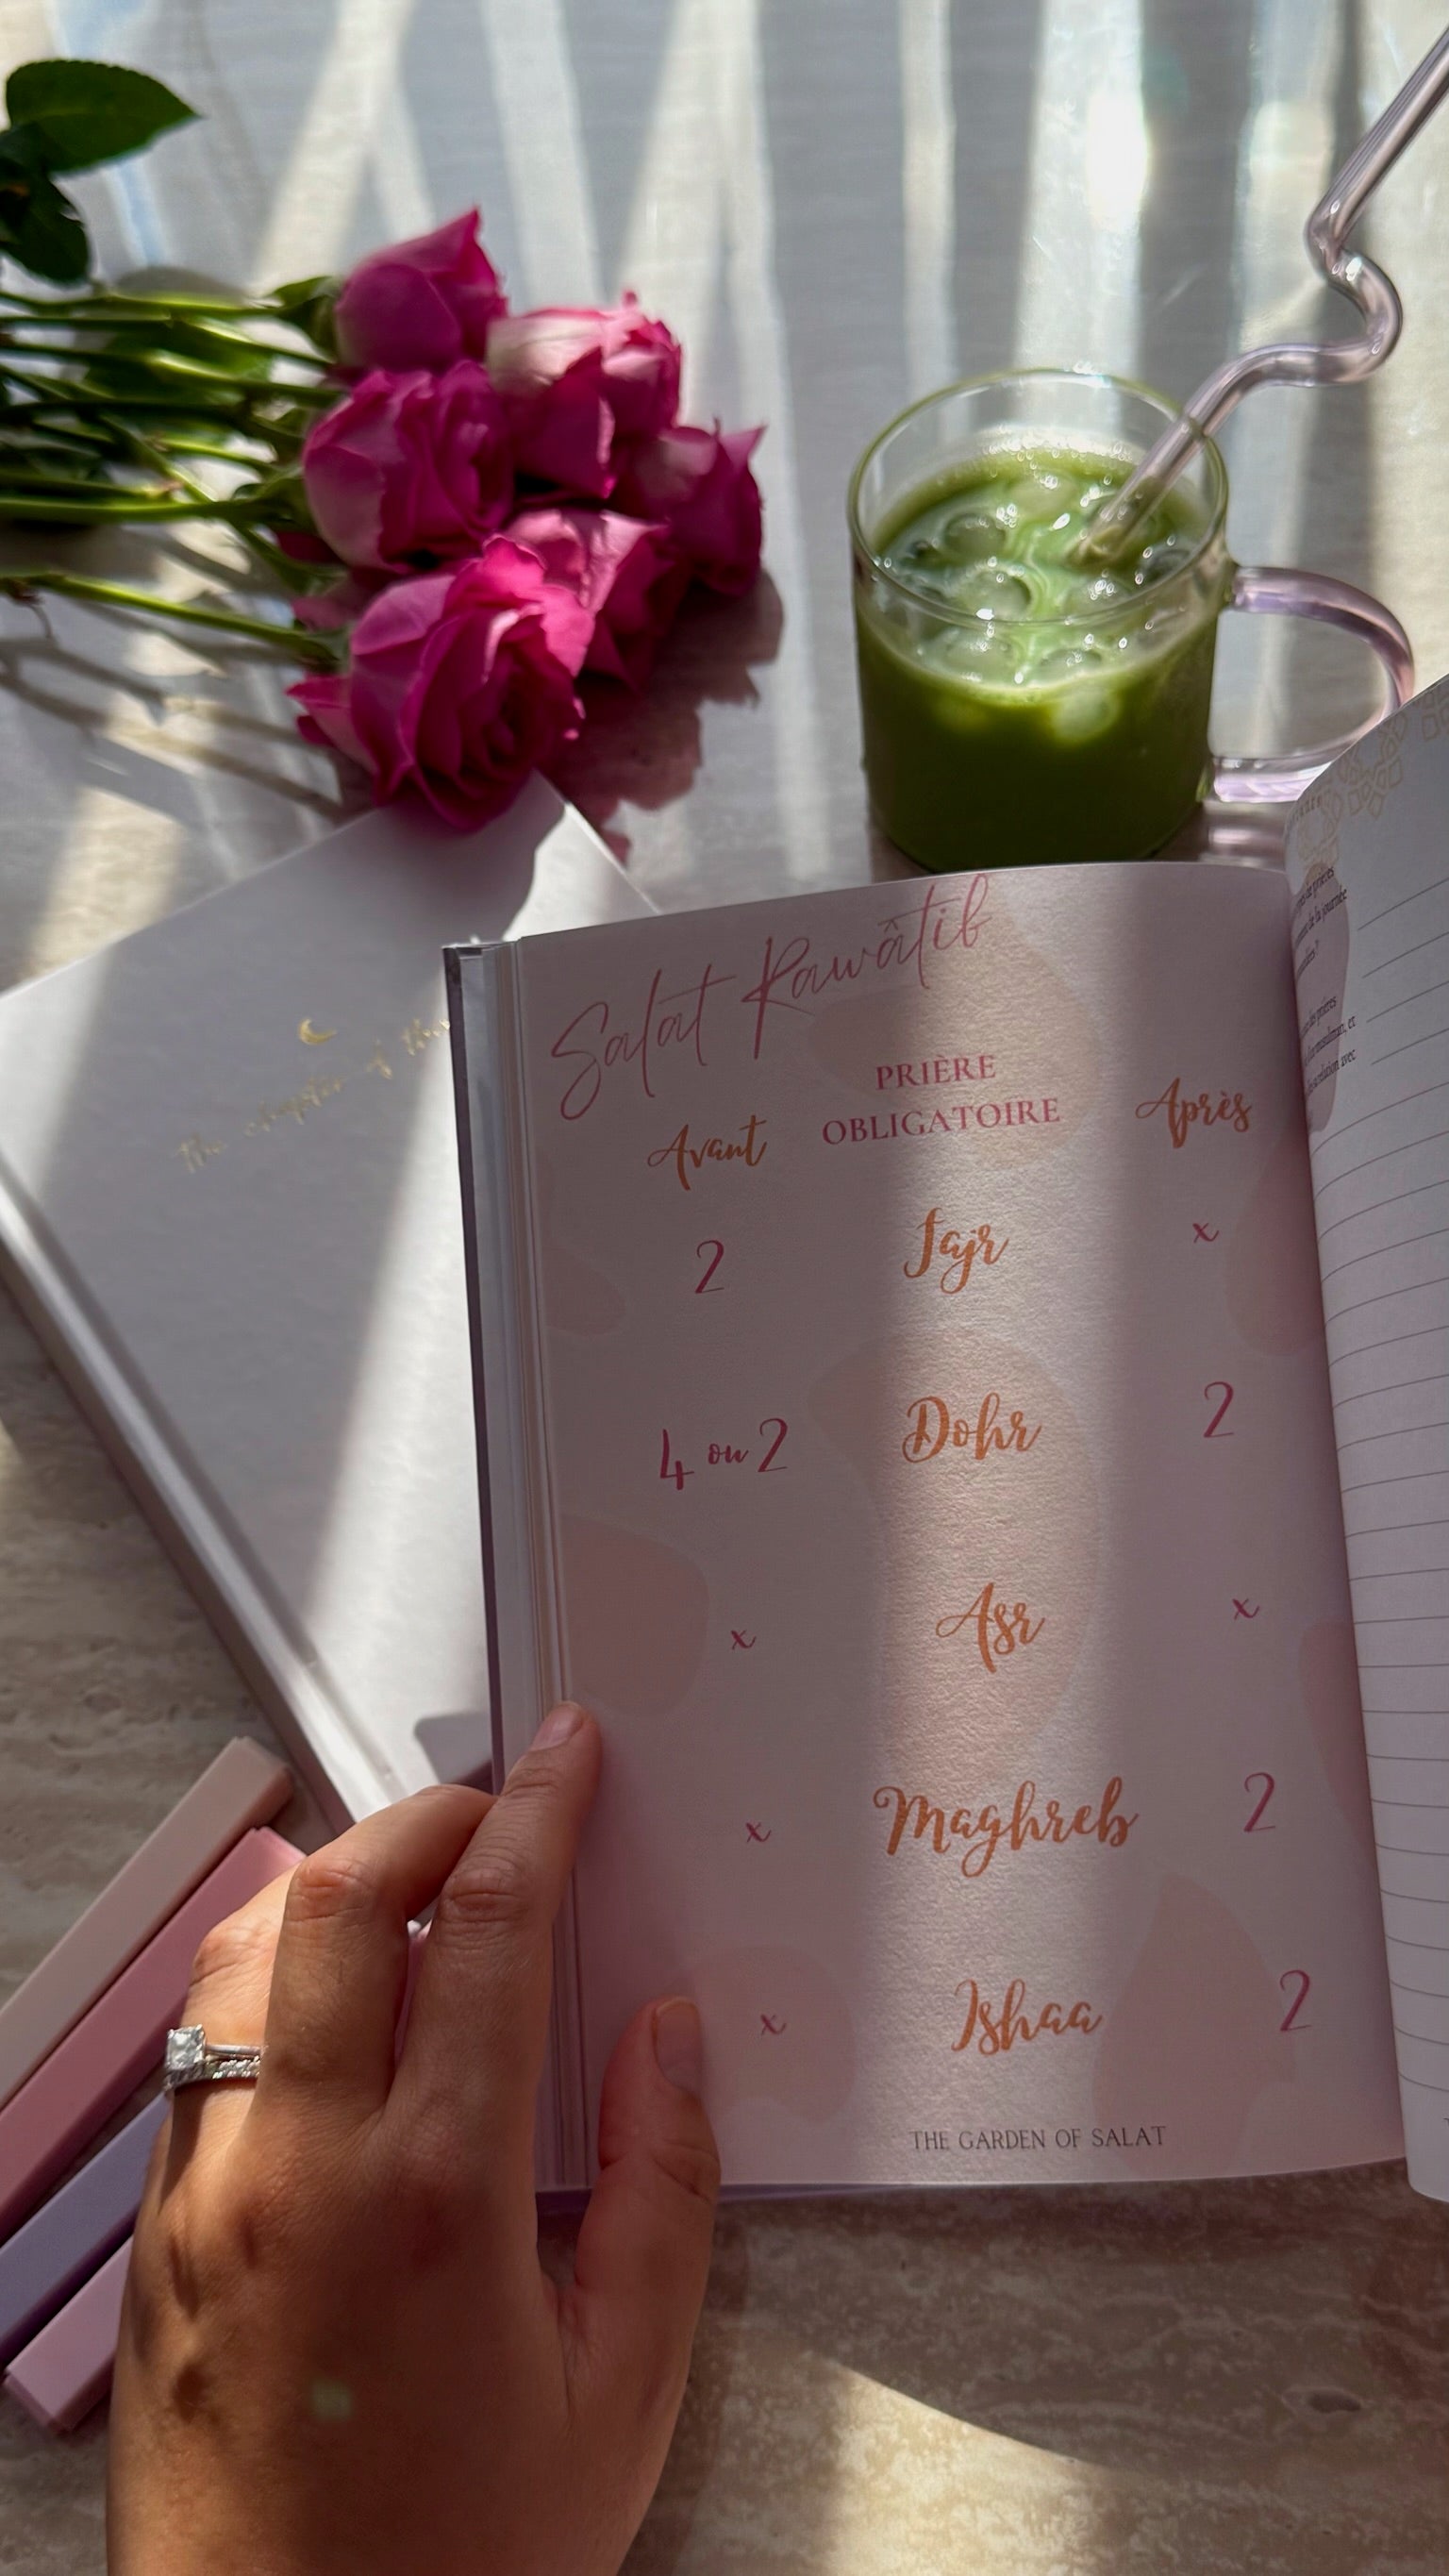 the chapter of the
Salat Rawâtib
Avant
PRIÈRE
OBLIGATOIRE
Après
2 Fajr x
4 ou 2 Dohr 2
x Asr x
x Maghreb 2
x Ishaa 2
THE GARDEN OF SALAT
prières
de la journée
des prières
musulman, et
relation avec